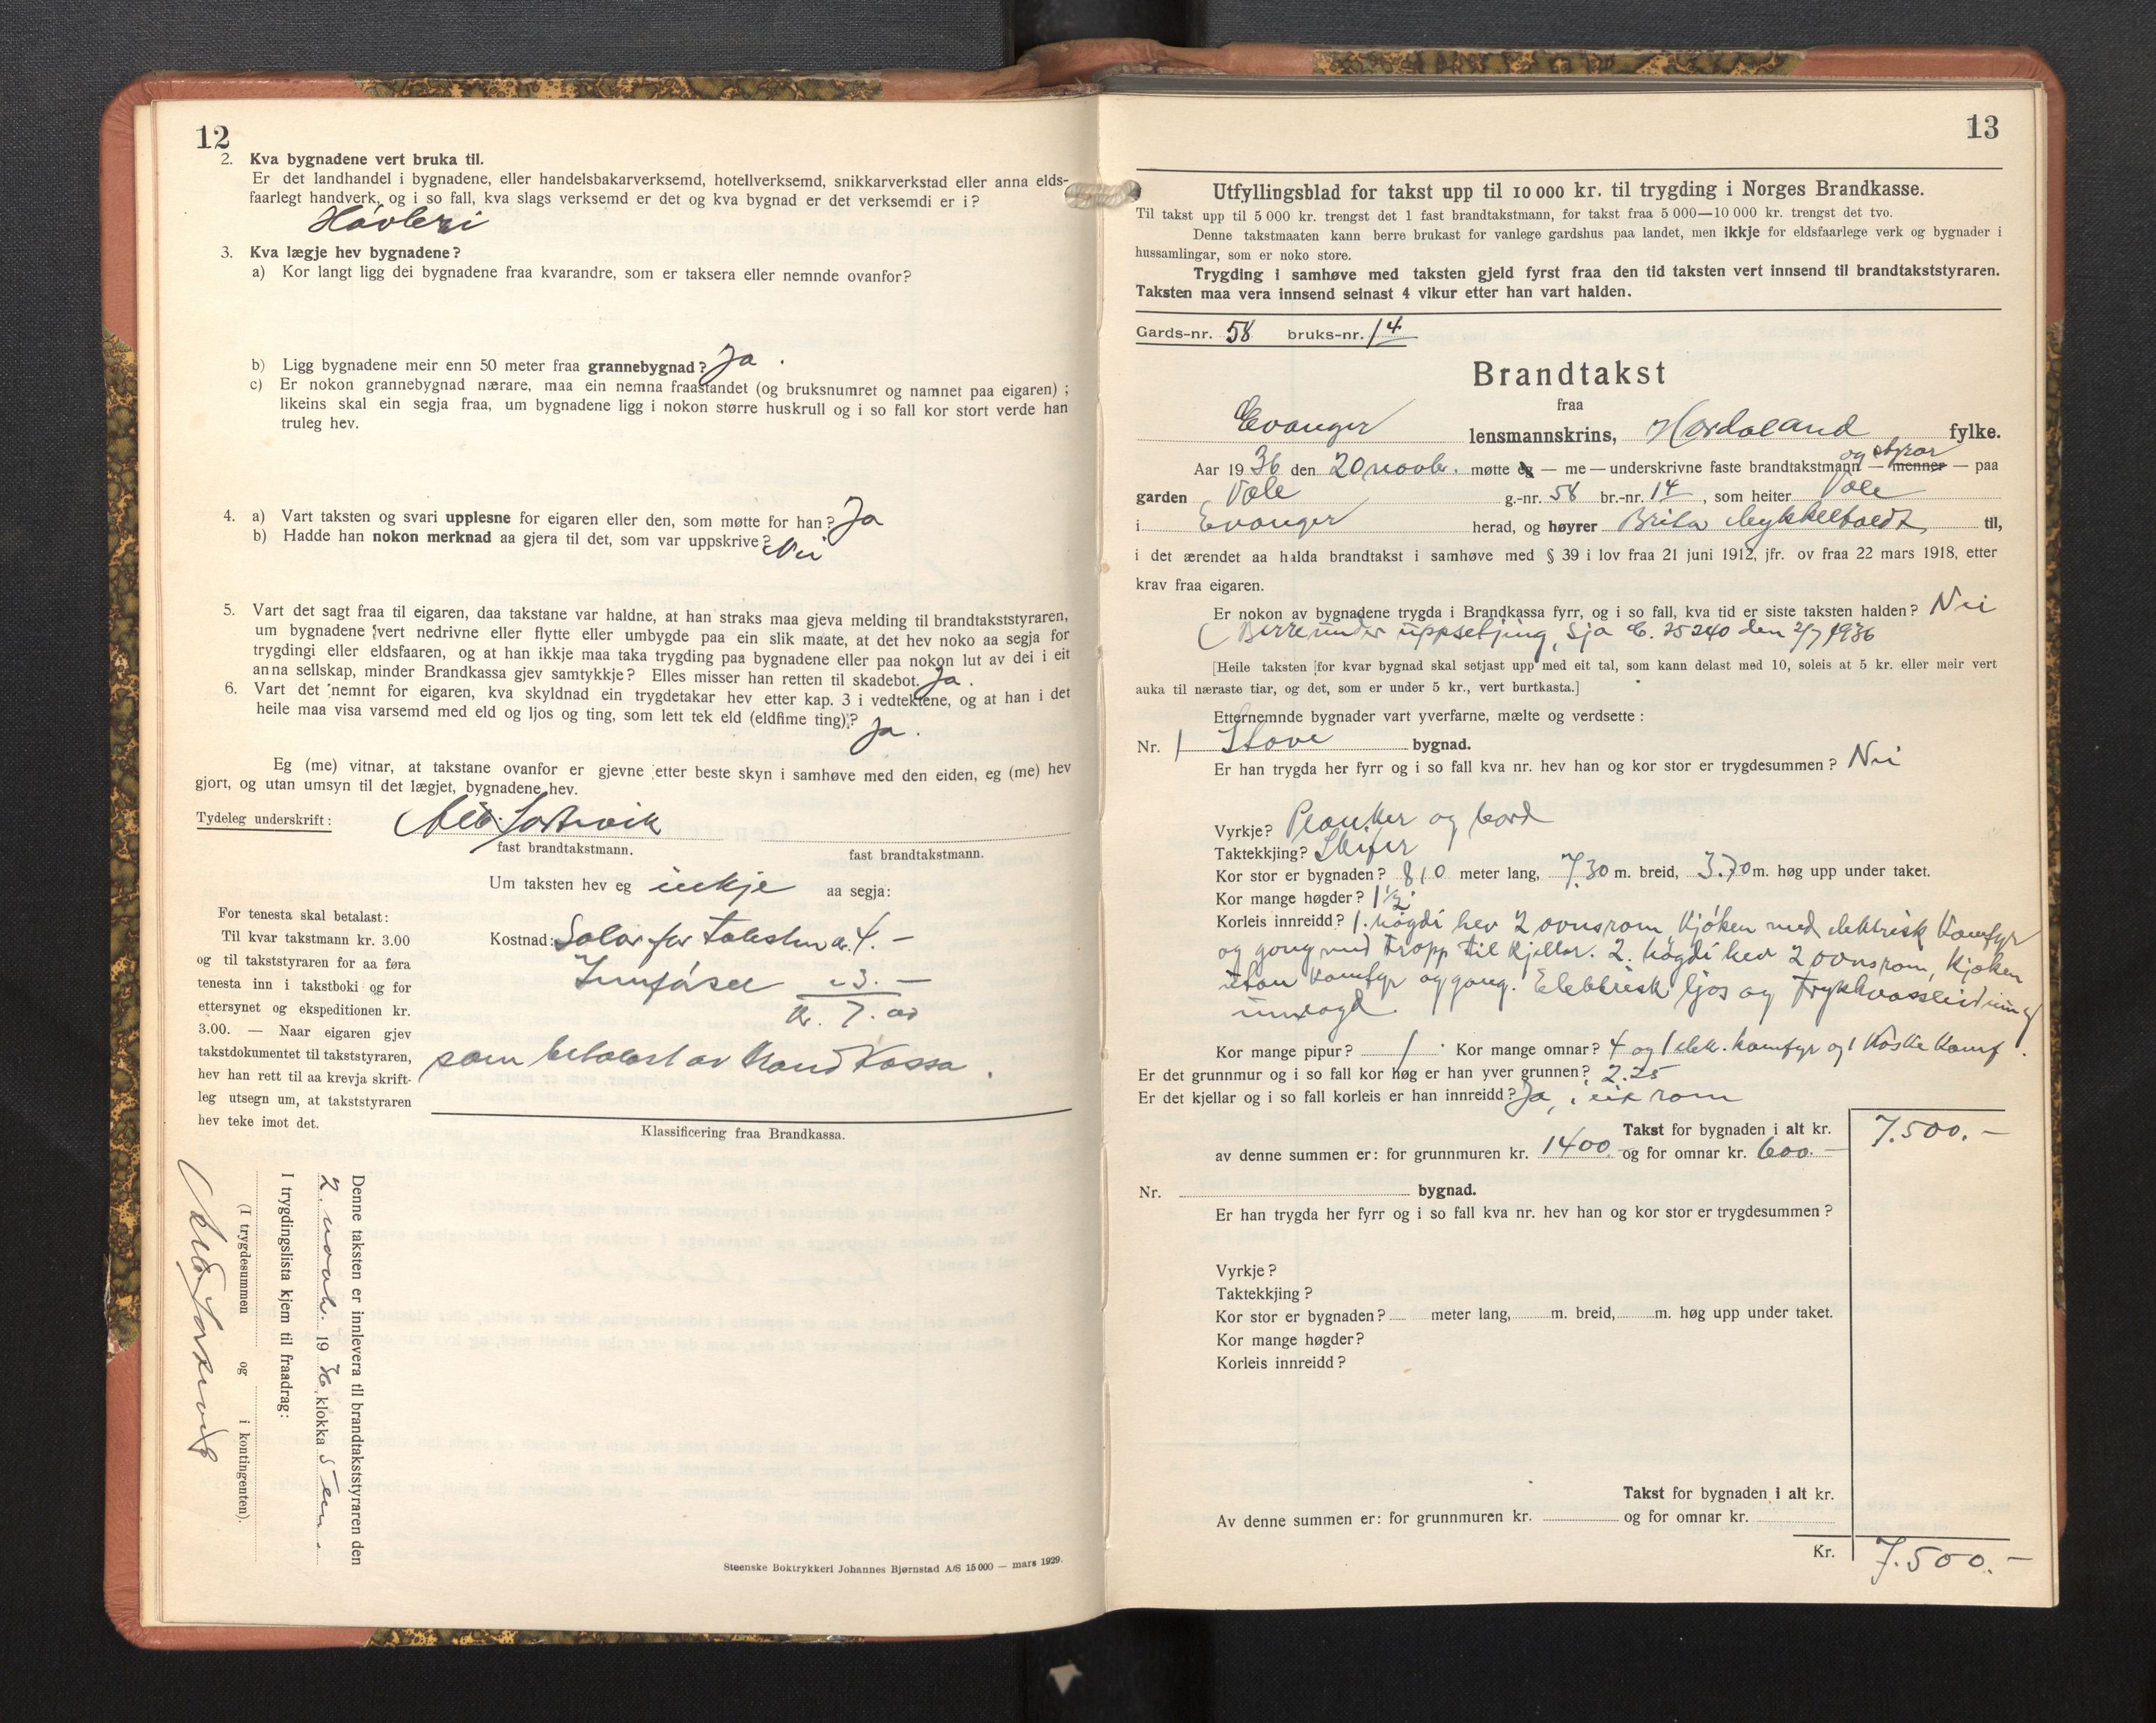 12
2. Kva bygnadene vert bruka til.
Er det landhandel i bygnadene, eller handelsbakarverksemd, hotellverksemd, snikkarverkstad eller anna elds-
faarlegt handverk, og i so fall, kva slags verksemd er det og kva bygnad er det verksemdi er i?
Høvleri
3. Kva lægje hev bygnadene?
a) Kor langt ligg dei bygnadene fraa kvarandre, som er taksera eller nemnde ovanfor?
b) Ligg bygnadene meir enn 50 meter fraa grannebygnad? Ja.
c) Er nokon grannebygnad nærare, maa ein nemna fraastandet (og bruksnumret og namnet paa eigaren);
likeins skal ein segja fraa, um bygnadene ligg i nokon større huskrull og i so fall kor stort verde han
truleg hev.
4. a) Vart taksten og svari upplesne for eigaren eller den, som møtte for han? Ja
b) Hadde han nokon merknad aa gjera til det, som var uppskrive? Nei
5. Vart det sagt fraa til eigaren, daa takstane var haldne, at han straks maa gjeva melding til brandtakststyraren,
um bygnadene vert nedrivne eller flytte eller umbygde paa ein slik maate, at det hev noko aa segja for
trygdingi eller eldsfaaren, og at han ikkje maa taka trygding paa bygnadene eller paa nokon lut av dei i eit
anna sellskap, minder Brandkassa gjev samtykkje? Elles misser han retten til skadebot. Ja.
6. Vart det nemnt for eigaren, kva skyldnad ein trygdetakar hev etter kap. 3 i vedtektene, og at han i det
heile maa visa varsemd med eld og ljos og ting, som lett tek eld (eldfime ting)? Ja.
Eg (me) vitnar, at takstane ovanfor er gjevne etter beste skyn i samhøve med den eiden, eg (me) hev
gjort, og utan umsyn til det lægjet, bygnadene hev.
Tydeleg underskrift:
fast brandtakstmann. fast brandtakstmann.
Um taksten hev eg inkje aa segja:
For tenesta skal betalast:
Til kvar takstmann kr. 3.00
og til takststyraren for aa føra
tenesta inn i takstboki og for
ettersynet og ekspeditionen kr.
3.00. — Naar eigaren gjev
takstdokumentet til takststyraren,
hev han rett til aa krevja skrift-
leg utsegn um, at takststyraren
hev teke imot det.
Kostnad: Salar for taksten kr. 4.-
Innførsel " 3.-
kr. 7.00
som betalast av Brandkassa.
Klassificering fraa Brandkassa.
Denne taksten er innlevera til brandtakststyraren den
2. novbr. 1936 klokka 5 em.
I trygdingslista kjem til fraadrag:
(I trygdesummen og i kontingenten).
Steenske Boktrykkeri Johannes Bjørnstad A/S 15 000 — mars 1929.
13
Utfyllingsblad for takst upp til 10 000 kr. til trygding i Norges Brandkasse.
Til takst upp til 5 000 kr. trengst det 1 fast brandtakstmann, for takst fraa 5 000—10 000 kr. trengst det tvo.
Denne takstmaaten kann berre brukast for vanlege gardshus paa landet, men ikkje for eldsfaarlege verk og bygnader i
hussamlingar, som er noko store.
Trygding i samhøve med taksten gjeld fyrst fraa den tid taksten vert innsend til brandtakststyraren.
Taksten maa vera innsend seinast 4 vikur etter han vart halden.
Gards-nr. 58 bruks-nr. 14
Brandtakst
fraa
Evanger lensmannskrins, Hordaland fylke.
Aar 1936 den 20 novbr. møtte eg — me — underskrivne faste brandtakstmann og styrar — menner — paa
garden Væle g.-nr. 58 br.-nr. 14, som heiter Væle
i Evanger herad, og høyrer Brita Mykkeltvedt til,
i det ærendet aa halda brandtakst i samhøve med § 39 i lov fraa 21 juni 1912, jfr. ov fraa 22 mars 1918, etter
krav fraa eigaren.
Er nokon av bygnadene trygda i Brandkassa fyrr, og i so fall, kva tid er siste taksten halden? Nei
(Berre under uppsetjing, sjå C. 25240 den 2/7 1936
[Heile taksten for kvar bygnad skal setjast upp med eit tal, som kann delast med 10, soleis at 5 kr. eller meir vert
auka til næraste tiar, og det, som er under 5 kr., vert burtkasta.]
Etternemnde bygnader vart yverfarne, mælte og verdsette:
Nr. 1 Stove bygnad.
Er han trygda her fyrr og i so fall kva nr. hev han og kor stor er trygdesummen? Nei
Vyrkje? Planker og bord
Taktekkjing? Skifer
Kor stor er bygnaden? 8,10 meter lang, 7,30 m. breid, 3.70 m. høg upp under taket.
Kor mange høgder? 1½
Korleis innreidd? 1. høgdi hev 2 ovnsrom, kjøken med elektrisk komfyr
og gong med tropp til kjellar. 2. høgdi hev 2 ovnsrom, kjøken
utan komfyr og gong. Elektrisk ljos og trykkvassleidning
innlagd.
Kor mange pipur? 1 Kor mange omnar? 4 og 1 elek. komfyr og 1 komf.
Er det grunnmur og i so fall kor høg er han yver grunnen? 2.25
Er det kjellar og i so fall korleis er han innreidd? Ja, i eit rom
Takst for bygnaden i alt kr. 7.500.-
av denne summen er: for grunnmuren kr. 1400.- og for omnar kr. 600.-
Nr. bygnad.
Er han trygda her fyrr og i so fall kva nr. hev han og kor stor er trygdesummen?
Vyrkje?
Taktekkjing?
Kor stor er bygnaden? meter lang, m. breid, m. høg upp under taket.
Kor mange høgder?
Korleis innreidd?
Takst for bygnaden i alt kr.
Av denne summen er: for grunnmuren kr. og for omnar kr.
Kr. 7.500.-